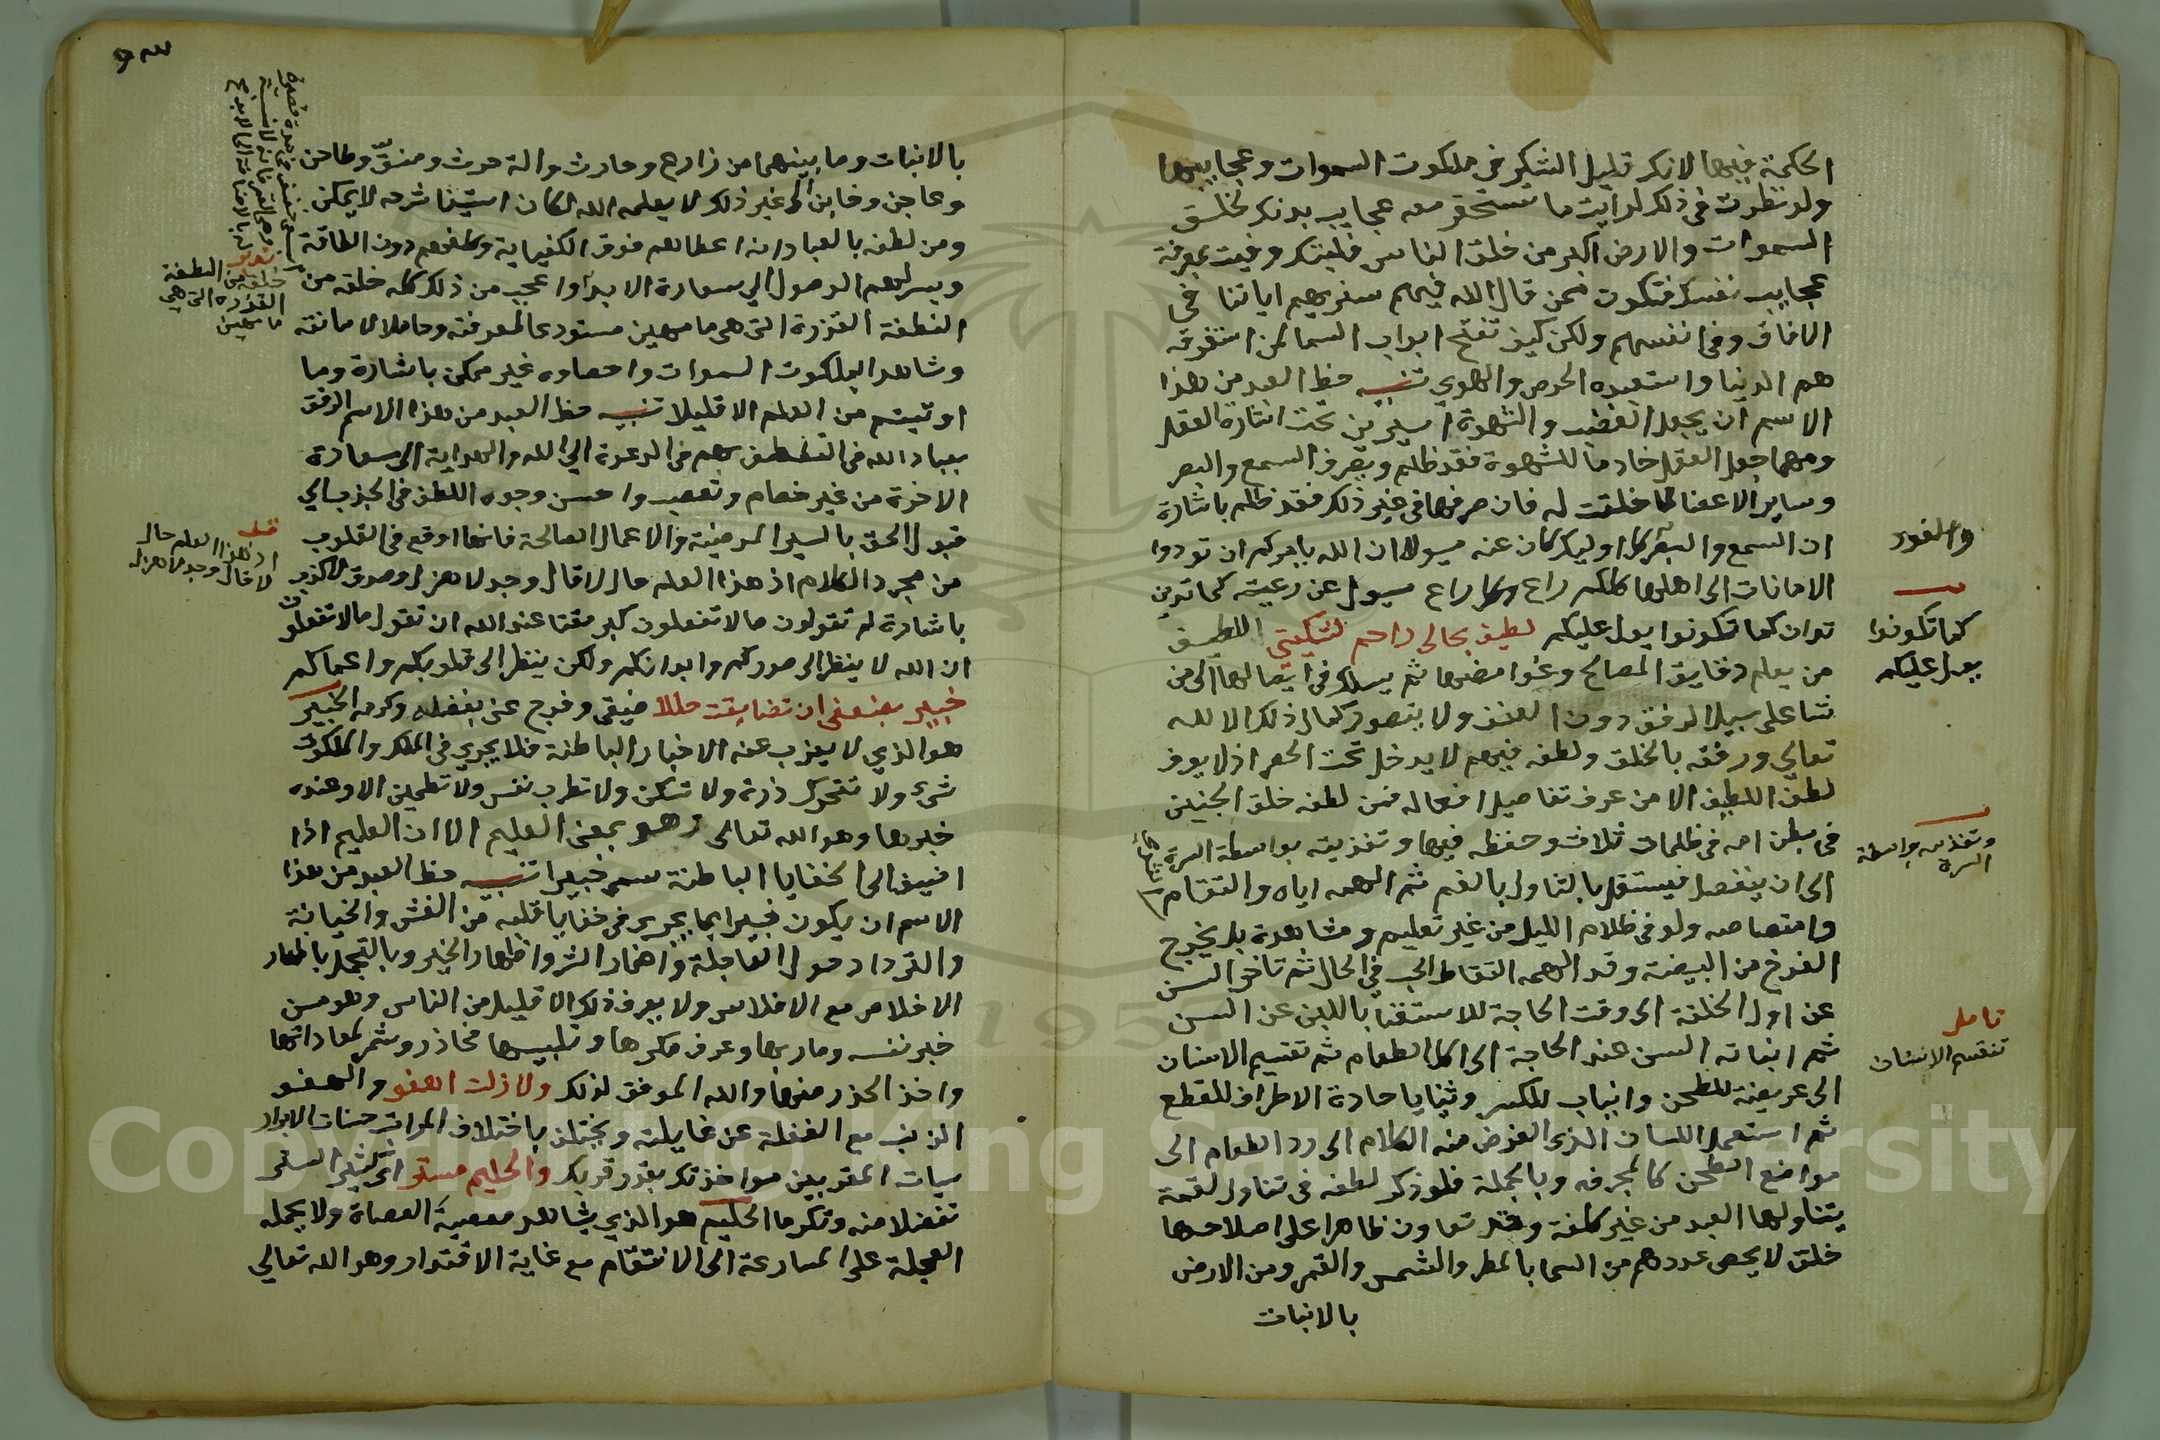 الحكمة فيها لانك قليل التفكر في ملكوت السموات وعجايبها
ولو نظرت في ذلك لرايت ما تستحقر معه عجايب بدنك لخلق
السموات والارض اكبر من خلق الناس فليتك وفيت بمعرفة
عجايب نفسك فتكون ممن قال الله فيهم سنريهم اياتنا في
الافاق وفي انفسهم ولكن كيف تفتح ابواب السما لمن استغرقه
هم الدنيا واستعبده الحرص والهوي تنبيه حظ العبد من هذا
الاسم ان يجعل الغضب والشهوة اسيرين تحت اشارة العقل
ومهما جعل العقل خادما للشهوة فقد ظلم ويصرف السمع والبصر
وساير الاعضا لما خلقت له فان صرفها في غير ذلك فقد ظلم باشارة
ان السمع والبصر كل اوليك كان عنه مسولا ان الله يامركم ان تودوا
الامانات الى اهلها كلكم راع وكل راع مسول عن رعيته كما تدين
تدان كما تكونوا يول عليكم لطيف بحالى راحم لشكيتي اللطيف
من يعلم دقايق المصالح وغوامضها ثم يسلك في ايصالها الى من
شا على سبيل الرفق دون العنف ولا يتصور كمال ذلك الا لله
تعالي ورفقه بالخلق ولطفه فيهم لا يدخل تحت الحصر اذ لا يعرف
لطف اللطيف الا من عرف تفاصيل افعاله فمن لطفه خلق الجنين
في بطن امه في ظلمات ثلاث وحفظه فيها وتغذيته بواسطة السرة
الى ان ينفصل فيستقل بالتناول بالفم ثم الهمه اياه والتقام
وامتصاصه ولو في ظلام الليل من غير تعليم ومشاهدة بل يخرج
الفرخ من البيضة وقد الهمه التقاط الحب في الحال ثم تاخر السن
عن اول الخلقة الى وقت الحاجة للاستغنا باللبن عن السن
ثم انباته السن عند الحاجة الى اكل الطعام ثم تقسيم الاسنان
الى عريضة للطحن وانياب للكسر وثنايا حادة الاطراف للقطع
ثم استعمل اللسان الذي الغرض منه الكلام الى رد الطعام الى
مواضع الطحن كالمجرفه وبالجملة فلو ذكر لطفه في تناول لقمة
يتناولها العبد من غير كلفة وقد تعاون ظاهرا على اصلاحها
خلق لا يحصى عددهم من السحاب المطر والشمس والقمر ومن الارض
بالانبات
والفود
كما تكونوا
يول عليكم
وتغذيته بواسطة
السرة
تامل
تقسيم الاسنان
بالانبات وما بينهما من زارع وحارث والة حرث ومنقّ وطاحن
وعاجن وخابز الى غير ذلك لا يعلمه الله لكان استيفا شرحه لا يمكن
ومن لطفه بالعباد انه اعطاهم فوق الكفاية وكلفهم دون الطاقة
ويسر لهم الوصول الي سعادة الابد واعجب من ذلك كله خلقه من
النطفة القذرة التي هي ما مهين مستودعا لمعرفته وحاملا لامانته
وشاهدا لملكوت السموات واحصاوه غير ممكن باشارة وما
اوتيتم من العلم الا قليلا تنبيه حظ العبد من هذا الاسم الرفق
بعباد الله في التلطف بهم في الدعوة الي الله والهداية الى سعادة
الاخرة من غير خصام وتعصب واحسن وجوه اللطف في الجذب الي
قبول الحق بالسير المرضية والاعمال الصالحة فانها اوقع في القلوب
من مجرد الكلام اذ هذا العلم حال لا قال وجد لا هزل وصدق لا كذب
باشارة لم تقولون ما لا تفعلون كبر مقتا عند الله ان تقولوا ما لا تفعلون
ان الله لا ينظر الى صوركم وابدانكم ولكن ينظر الى قلوبكم واعمالكم
خبير بضعفي ان تضايقت حللا ضيقي وفرج عني بفضله وكرمه الخبير
هو الذي لا يعزب عنه الاخبار الباطنة فلا يجري في الملك والملكوت
شيء ولا تتحرك ذرة ولا تسكن ولا تضطرب نفس ولا تطمين الا وعنده
خبرها وهو الله تعالى وهو بمعنى العليم الا ان العليم اذا
اضيف الى الخفايا الباطنة سمي خبيرا تنبيه حظ العبد من هذا
الاسم ان يكون خبيرا بما يجري في خفايا قلبه من الغش والخيانة
والترداد حول العاجلة واضمار الشر واظهار الخير وبالتجمل باظهار
الاخلاص مع الافلاس ولا يعرف ذلك الا قليل من الناس وهو من
خبر نفسه ومارسها وعرف مكرها وتلبيسها فحاذر وشمر لمعاداتها
واخذ الحذر منها والله الموفق لذلك ولا زلت اهفو والهفو
الذنب مع الغفلة عن غايلته ويختلف باختلاف المراتب حسنات الابرار
سيات المقربين مواخذتك بقدر قربك والحليم مستر اي كثير الستر
تفضلا منه وتكرما الحليم هو الذي يشاهد معصية العصاة ولا يحمله
العجلة على المسارعة الى الانتقام مع غاية الاقتدار وهو الله تعالي
خلقه من النطفة
القذرة التي هي
ما مهين
قف
اذ هذا العلم حال
لا قال وجد لا هزل
Copyright © King Saud University
1957